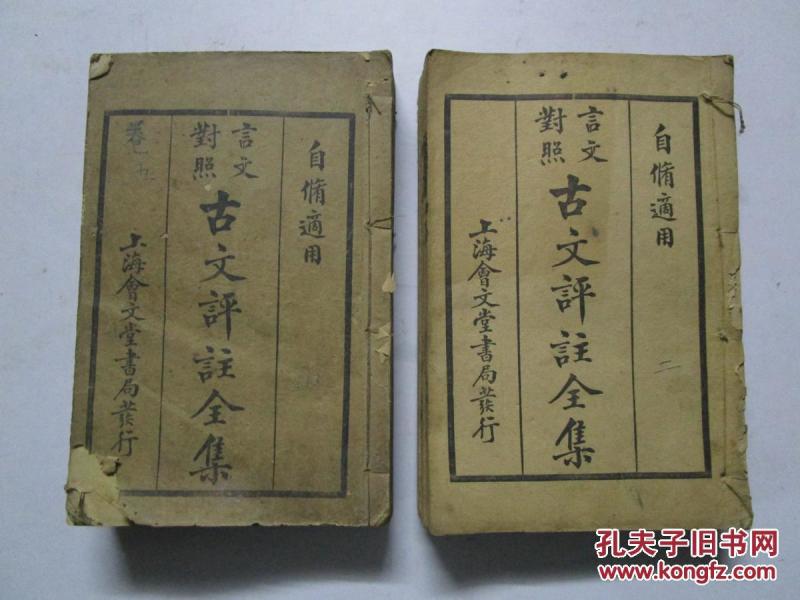 自脩適用
言文
對照
古文評註全集
上海會文堂書局發行
自脩適用
言文
對照
古文評註全集
上海會文堂書局發行
二
孔夫子旧书网
www.kongfz.com